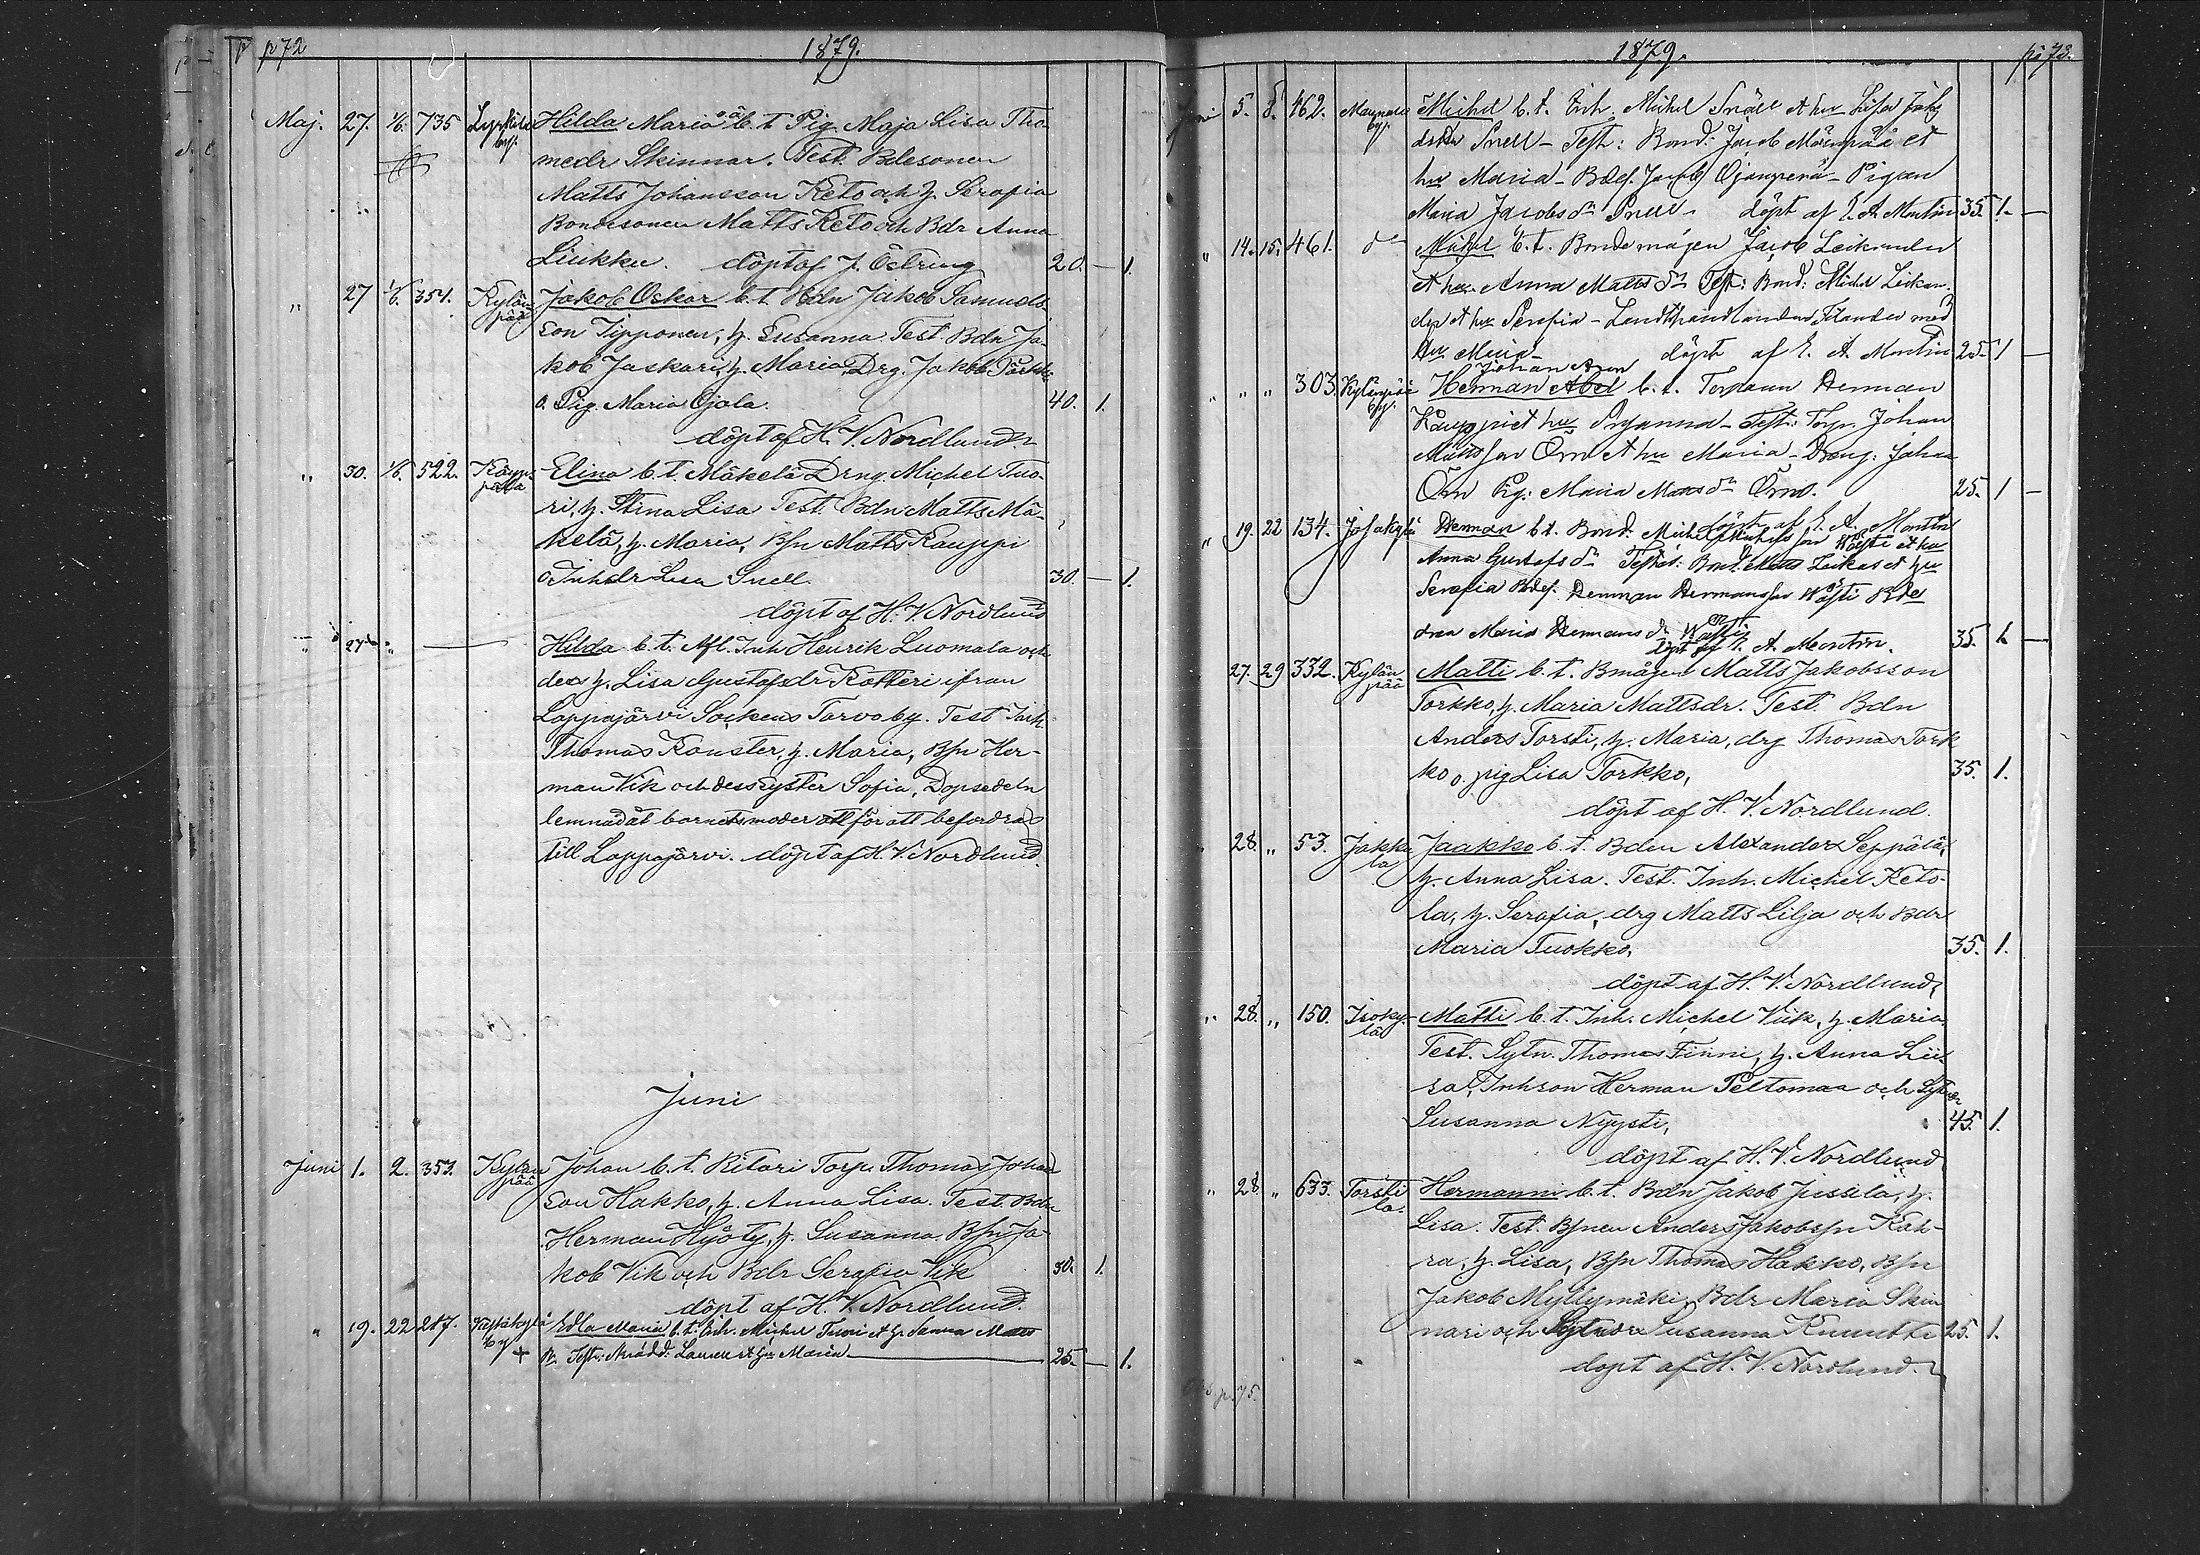 p 72 1879.
Maj. 27. 1/6. 735 Hilda Maria o.ä. b. t. Pig. Maja Lisa Tho-
by. medr Skinnar. Test. Bdesonen
Matts Johansson Keto och h. Serafia
Bondesonen Matts Keto och Bdr Anna
Liukku. döpt af J. Östring 20. — 1.
" 27 1/6. 351. Kylän Jakob Oskar b. t. Bdn Jakob Samuels-
pää son Tipponen, h. Susanna. Test. Bdn Ja-
kob Jaskari, h. Maria, Drg. Jakob
o. Pig. Maria Ojala. 40. 1.
döpt af H. V. Nordlund.
" 30. 1/6. 522. Elina b. t. Mäkelä Drng. Michel Tuo-
ri, h. Stina Lisa. Test. Bdn Matts Mä-
kelä, h. Maria, Bsn Matts Kauppi
o. Inhdr Lisa Snell. 30. — 1.
döpt af H. V. Nordlund
Hilda b. t. Afl. Inh Henrik Luomala och
dess h. Lisa Gustafsdr Kötteri ifrån
Lappajärvi Sockens Tarvo by. Test. Inh.
Thomas Kanster, h. Maria, Bsn Her-
man Vik och dess syster Sofia, Dopsedeln
lemnad åt barnets moder för att befordras
till Lappajärvi. döpt af H. V. Nordlund.
Juni
Juni 1. 2. 353. Kylän Johan b. t. Ritari Torp. Thomas Johans
pää son Hakko, h. Anna Lisa. Test. Bdn
Herman Hyöty, h. Susanna, Bsn Ja-
kob Vik och Bdr Serafia Vik 30. 1.
döpt af H. V. Nordlund.
" 19. 22 217. Edla Maria b. t. Inh. Michel Tuori et h. Sanna Matts
by + Test: Laurell et hu Maria — 25. — 1.
1879. p. 73.
Juni 5. 8. 462. Michel b. t. Inh. Michel Snäll et hu Lisa Jak
by. Snell — Test: Bond: Jacob Mäenpää et
hu Maria — Bdes. Jacob Ojanperä — Pigan
Maria Jacobs dr Snell. döpt af E. A. Montin 35. 1. —
" 14. 15. 461. do Michel b. t. Bondemågen Jacob Leikander
et hu Anna Matts dr Test: Bond: Michel Leikan-
der et hu Serafia — Landthandlanden Filander med
hu Maria — döpt af E. A. Montin 25. 1 —
Johan
" " " 303. Kylänpää Herman Abel b. t. Torparen Herman
by. Kauppi et hu Susanna — Test: Torp. Johan
Mattsson Örn et hu Maria — Dreng: Johan
Örn Pig: Maria Matts dr Örn. 25. 1 —
döpt af E. A. Montin
" 19. 22 134. Isokylä Herman b. t. Bond: Michel Michelsson Wästi et hu
Anna Gustafs dr Test: Bond. Matts Leikas et hu
Serafia Bdes. Herman Hermansson Wästi Bde
dren Maria Hermans dr Wästi 35. 1. —
döpt af E. A. Montin.
27. 29 332. Kylän Matti b. t. Bmågen Matts Jakobsson
pää Torkko, h. Maria Mattsdr. Test. Bdn
Anders Torsti, h. Maria, drg Thomas Tork
ko o. pig Lisa Torkko, 35. 1.
döpt af H. V. Nordlund.
28. " 53. Jakko Jaakko b. t. Bden Alexander Seppälä,
la h. Anna Lisa. Test. Inh. Michel Keto-
la, h. Serafia, drg Matts Lilja och Bdr
Maria Tuokko, 35. 1.
döpt af H. V. Nordlund,
" 28. " 150. Isoky- Matti b. t. Inh. Michel Viik, h. Maria.
lä Test. Sytn. Thomas Finni, h. Anna Lii-
sa, Inhson Herman Peltomaa och
Susanna Nyysti, 45. 1.
döpt af H. V. Nordlund
" 28. " 633. Torsti Hermanni b. t. Bdn Jakob Jussila, h.
la. Lisa. Test. Bsnen Anders Jakobssn Kah-
ra, h. Lisa, Bsn Thomas Hakko, Bsn
Jakob Myllymäki, Bdr Maria Skin
nari och Susanna Knuutti 25. 1.
döpt af H. V. Nordlund.
p. 75.